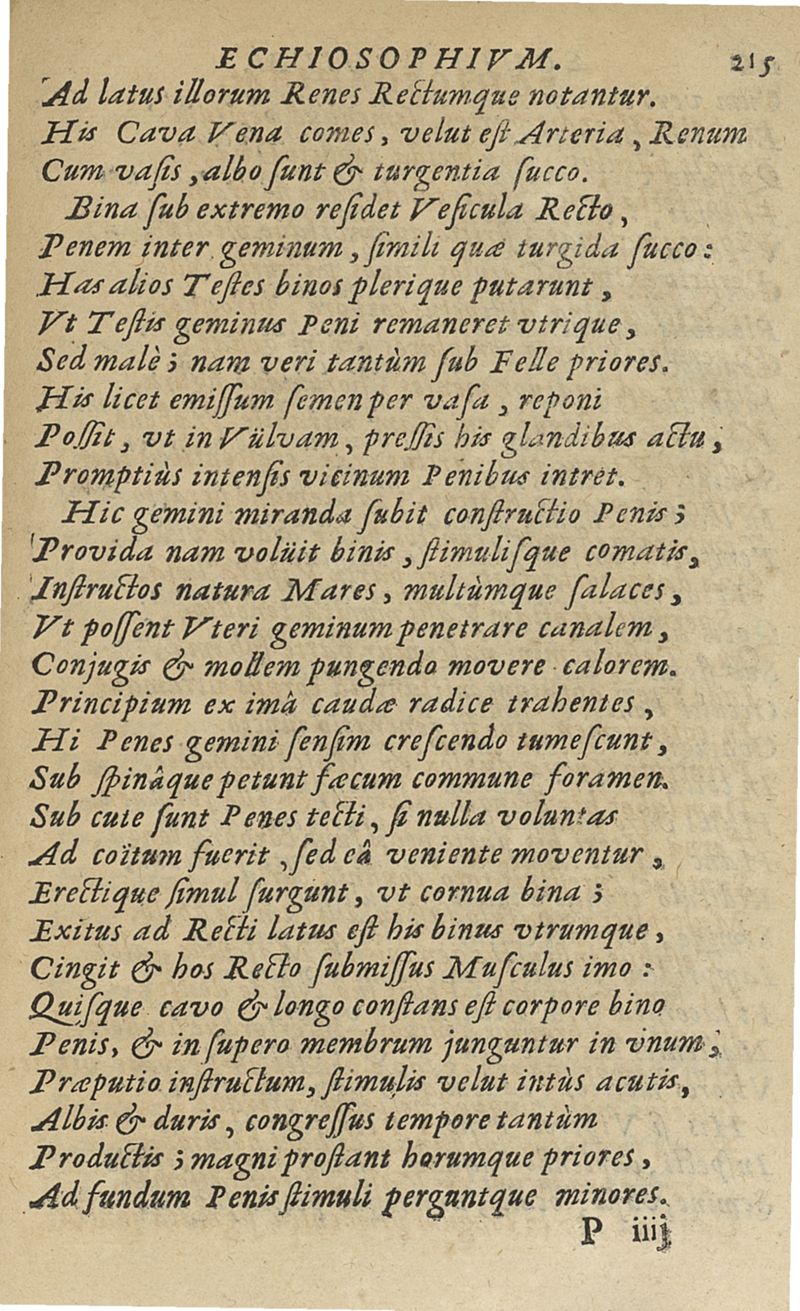 ECHIOSOPHIVM. 215
Ad latus illorum Renes Rectumque notantur.
His Cava Vena comes, velut eſt Arteria, Renum
Cum vaſis, albo ſunt & turgentia ſucco.
Bina ſub extremo reſidet Veſicula Recto,
Penem inter geminum, ſimili quæ turgida ſucco:
Has alios Teſtes binos plerique putarunt,
Vt Teſtis geminus Peni remaneret vtrique,
Sed malè; nam veri tantùm ſub Felle priores.
His licet emiſſum ſemen per vaſa, reponi
Poſſit, vt in Vülvam, preſſis his glandibus actu,
Promptiùs intenſis vicinum Penibus intret.
Hic gemini miranda ſubit conſtructio Penis;
Provida nam volüit binis, ſtimuliſque comatis,
Inſtructos natura Mares, multùmque ſalaces,
Vt poſſent Vteri geminum penetrare canalem,
Conjugis & mollem pungendo movere calorem.
Principium ex imâ caudæ radice trahentes,
Hi Penes gemini ſenſim creſcendo tumeſcunt,
Sub ſpinâque petunt fæcum commune foramen.
Sub cute ſunt Penes tecti, ſi nulla voluntas
Ad coïtum fuerit, ſed eâ veniente moventur,
Erectique ſimul ſurgunt, vt cornua bina;
Exitus ad Recti latus eſt his binus vtrumque,
Cingit & hos Recto ſubmiſſus Muſculus imo:
Quiſque cavo & longo conſtans eſt corpore bino
Penis, & in ſupero membrum junguntur in vnum;
Præputio inſtructum, ſtimulis velut intùs acutis,
Albis & duris, congreſſus tempore tantùm
Productis; magni proſtant horumque priores,
Ad fundum Penis ſtimuli perguntque minores.
P iiij